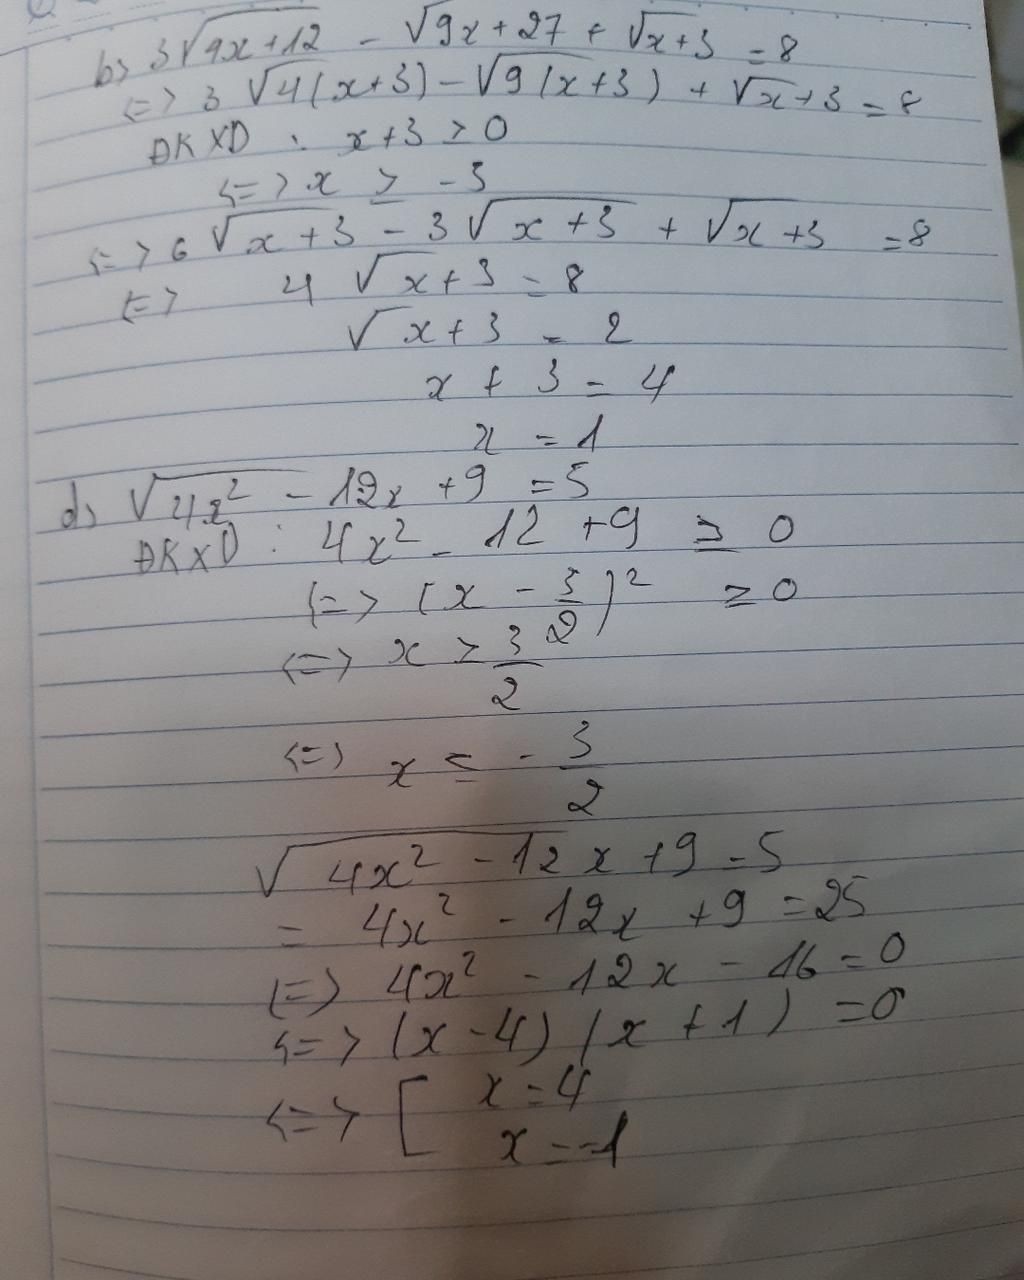 b, 3√9x+12 - √9x+27 + √x+3 = 8
<=> 3 √4(x+3) - √9(x+3) + √x+3 = 8
ĐKXD : x+3 ≥ 0
<=> x ≥ -3
<=> 6 √x+3 - 3 √x+3 + √x+3 = 8
<=> 4 √x+3 = 8
√x+3 = 2
x + 3 = 4
x = 1
d, √4x² - 12x +9 = 5
ĐKXD : 4x² - 12 +9 ≥ 0
<=> (x - 3/2)² ≥ 0
<=> x ≥ 3/2
<=> x ≤ - 3/2
√4x² - 12x +9 = 5
= 4x² - 12x +9 = 25
<=> 4x² - 12x - 16 = 0
<=> (x-4) (x+1) = 0
<=> [ x = 4
x = -1